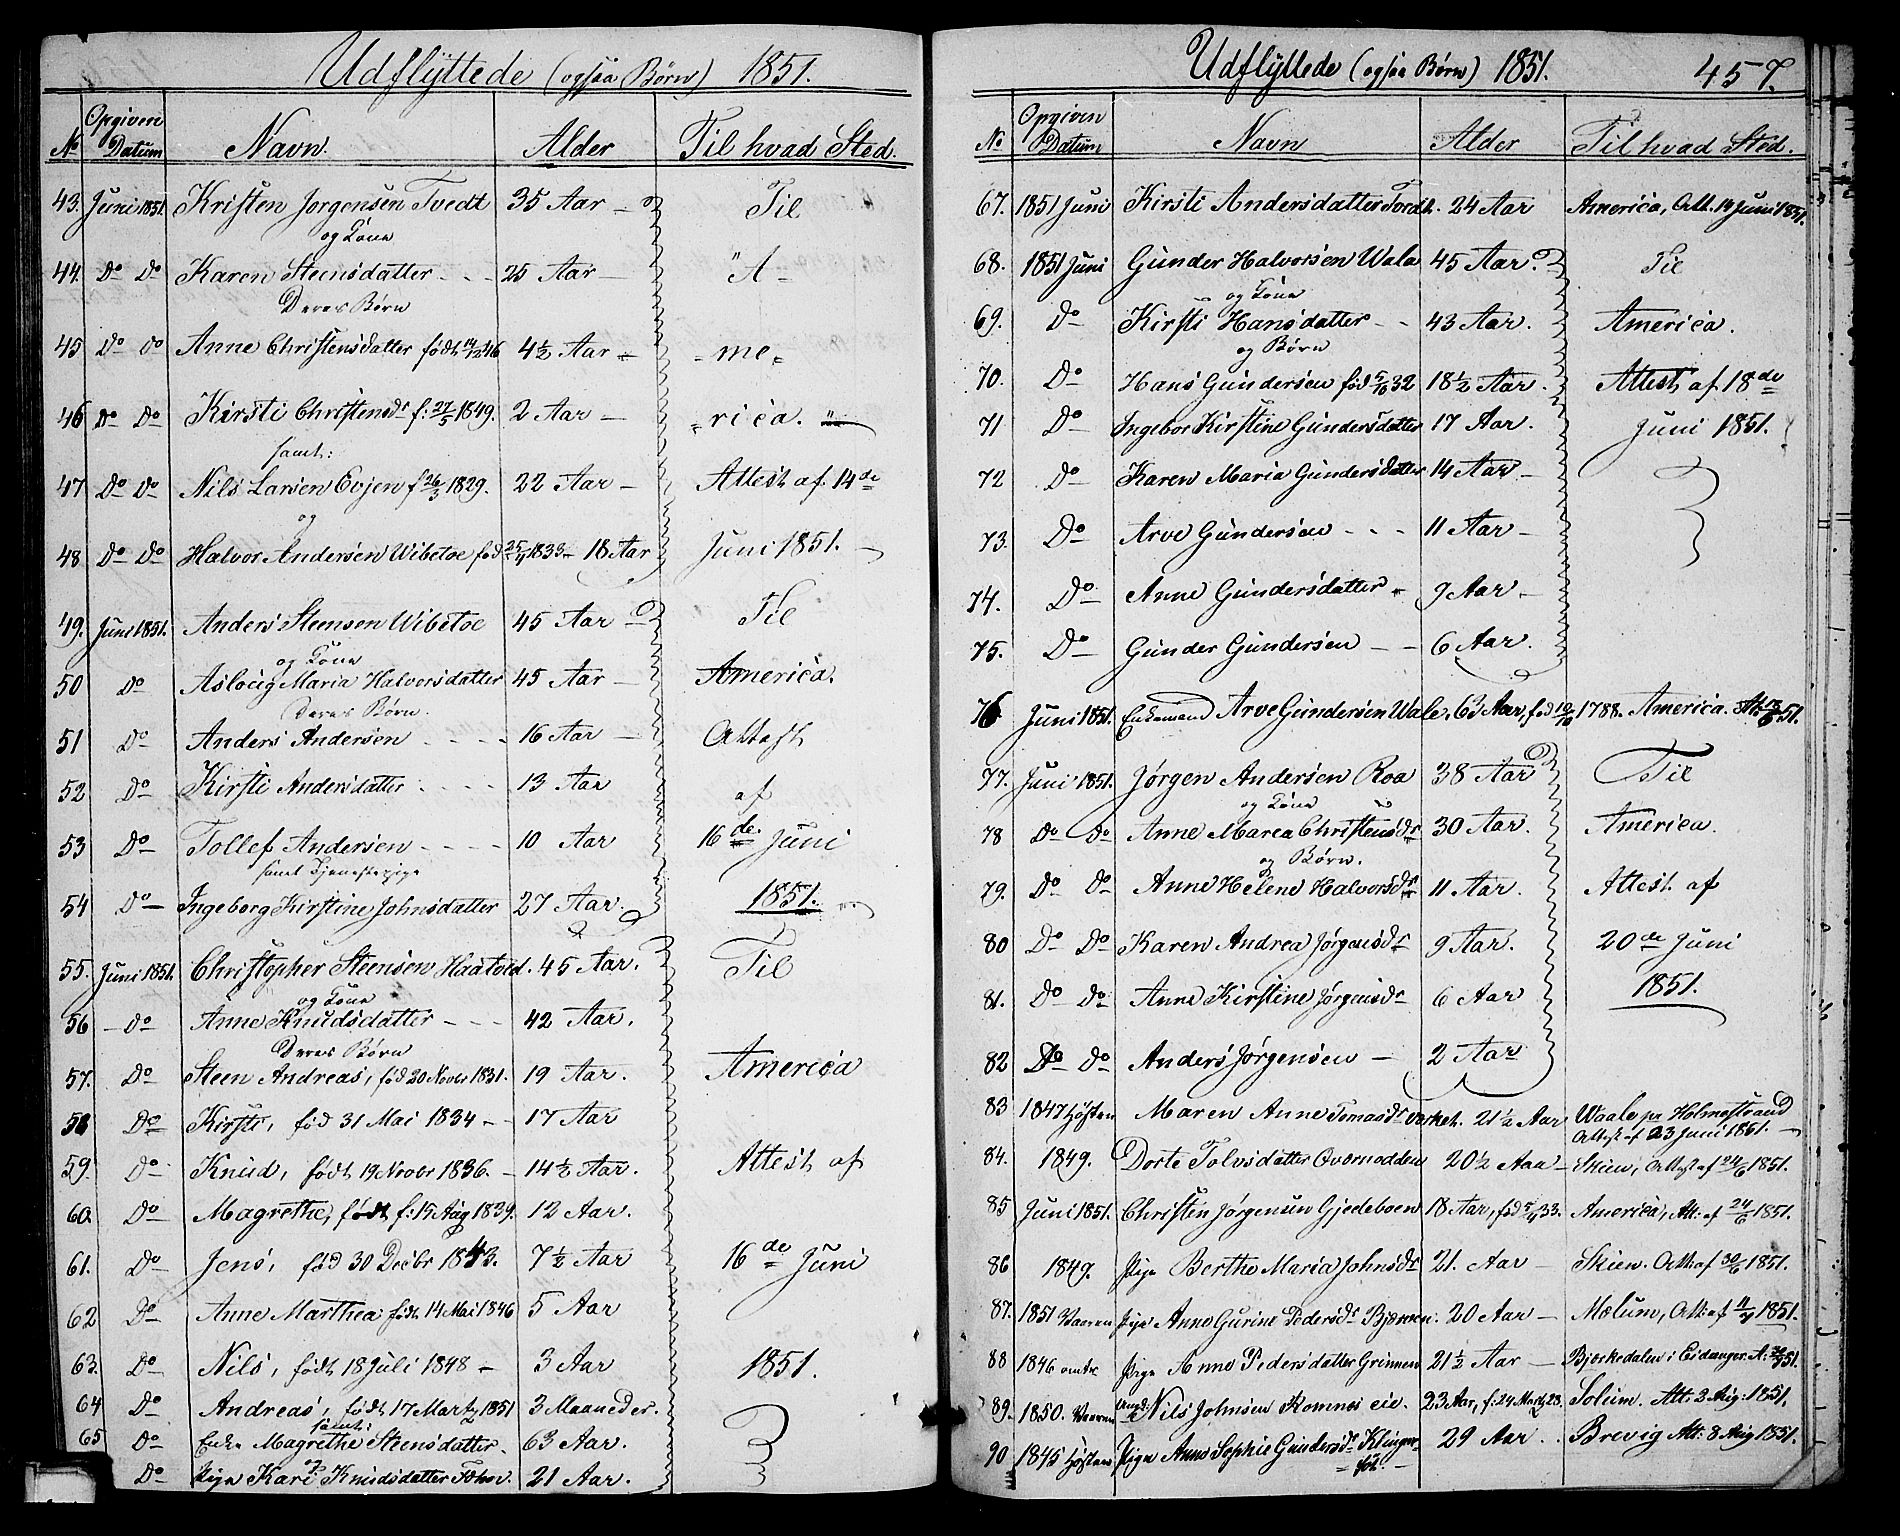 Udflyttede (ogsaa Børn) 1851.
No Opgiven Datum Navn. Alder Til hvad Sted.
43. Juni 1851. Kristen Jørgensen Tvedt 35 Aar — Til
og Kone
44. Do Do Karen Steensdatter 25 Aar — "A"
Deres Børn
45 Do Do Anne Christensdatter født 14/12 46 4½ Aar „ me „
46 Do Do Kirsti Christensdr f: 27/5 1849. 2 Aar — „ rica.
samt:
47 Do Do Nils Larsen Evjen f 26/3 1829. 22 Aar — Attest af 14de
og
48 Do Do Halvor Andersen Wibetoe fød 25/4 1833 — 18 Aar Juni 1851.
49. Juni 1851. Anders Steensen Wibetoe 45 Aar Til
og Kone
50 Do Asloug Maria Halvorsdatter 45 Aar — America.
Deres Børn.
51 Do Anders Andersen 16 Aar — Attest
52 Do Kirsti Andersdatter 13 Aar af
53 Do Tollef Andersen 10 Aar 16de Juni
samt Tjenestepige
54 Do Ingeborg Kirstine Johnsdatter 27 Aar. 1851.
55. Juni 1851. Christopher Steensen Haatved. 45 Aar. Til
og Kone
56 Do Anne Knudsdatter 42 Aar.
Deres Børn
57. Do Steen Andreas, fød 20 Novbr 1831. 19 Aar. America
58 Do Kirsti, fød 31 Mai 1834 17 Aar
59. Do Knud, født 19 Novbr 1836. 14½ Aar. Attest af
60. Do Magrethe, født f: 15 Aug 1839. 12 Aar.
61. Do Jens, fød 30 Decbr 1843. 7½ Aar 16de Juni
62 Do Anne Marthea født 14 Mai 1846 5 Aar
63. Do Nils, født 18 Juli 1848 — 3 Aar 1851.
64 Do Andreas, født 17 Martz 1851 3 Maaneder.
samt:
65 Do Enke Magrethe Steensdatter 63 Aar.
Do Pige Kari Knudsdatter 21 Aar.
Udflyttede (ogsaa Børn) 1851. 457.
No Opgiven Datum Navn Alder Til hvad Sted.
67. 1851 Juni Kirsti Andersdatter Tvedt. 24 Aar America, Att. 14 Juni 1851.
68. 1851 Juni Gunder Halvorsen Wala 45 Aar. Til
og Kone
69. Do Kirsti Hansdatter 43 Aar. America.
og Børn
70. Do Hans Gundersen fød 5/10 32 18½ Aar. Attest af 18de
71 Do Ingebor Kirstine Gundersdatter 17 Aar. Juni 1851.
72 Do Karen Maria Gundersdatter 14 Aar —
73. Do Arve Gundersen 11 Aar —
74. Do Anne Gundersdatter 9 Aar —
75. Do Gunder Gundersen 6 Aar.
76 Juni 1851. Enkemand Arve Gundersen Wale. 63 Aar, fød 12/10 1788. America. At. 18/6 51.
77. Juni 1851. Jørgen Andersen Roa 38 Aar Til
og Kone
78 Do Do Anne Marea Christensdr 30 Aar. America.
og Børn.
79. Do Do Anne Helene Halvorsdr 11 Aar. Attest af
80 Do Do Karen Andrea Jørgensdr 9 Aar. 20de Juni
81. Do Do Anne Kirstine Jørgensdr 6 Aar 1851.
82 Do Do Anders Jørgensen — 2 Aar
83 1847 Høsten Maren Anne Tomasdr Værket. 21½ Aar Waale pr Holmestrand
Attest af 23 Juni 1851.
84. 1849. Dorte Tolvsdatter Overnodden 20½ Aar — Skien, Attest af 24/6 1851.
85 Juni 1851. Christen Jørgensen Gjedeboen 18 Aar, fød 5/4 33. America, Att: af 24/6 1851.
86 1849. Pige Berthe Maria Johnsdr 21. Aar — Skien. Att. af 30/6 1851.
87. 1851 Vaaren Pige Anne Gurine Pedersdr 20 Aar — Mælum, Att: af 1851.
88 1846 omtr Pige Anne Pedersdatter Grinnen 21½ Aar — Bjørkedalen i Eidanger. A: 51.
89. 1850. Vaaren Ungk: Nils Johnsen Romnes eie. 23 Aar, f: 24 Martz 28. Solum. Att: 3 Aug: 1851.
90 1845 Høsten Pige Anne Sophie Gundersdr 29 Aar Brevig Att: 8 Aug 1851.